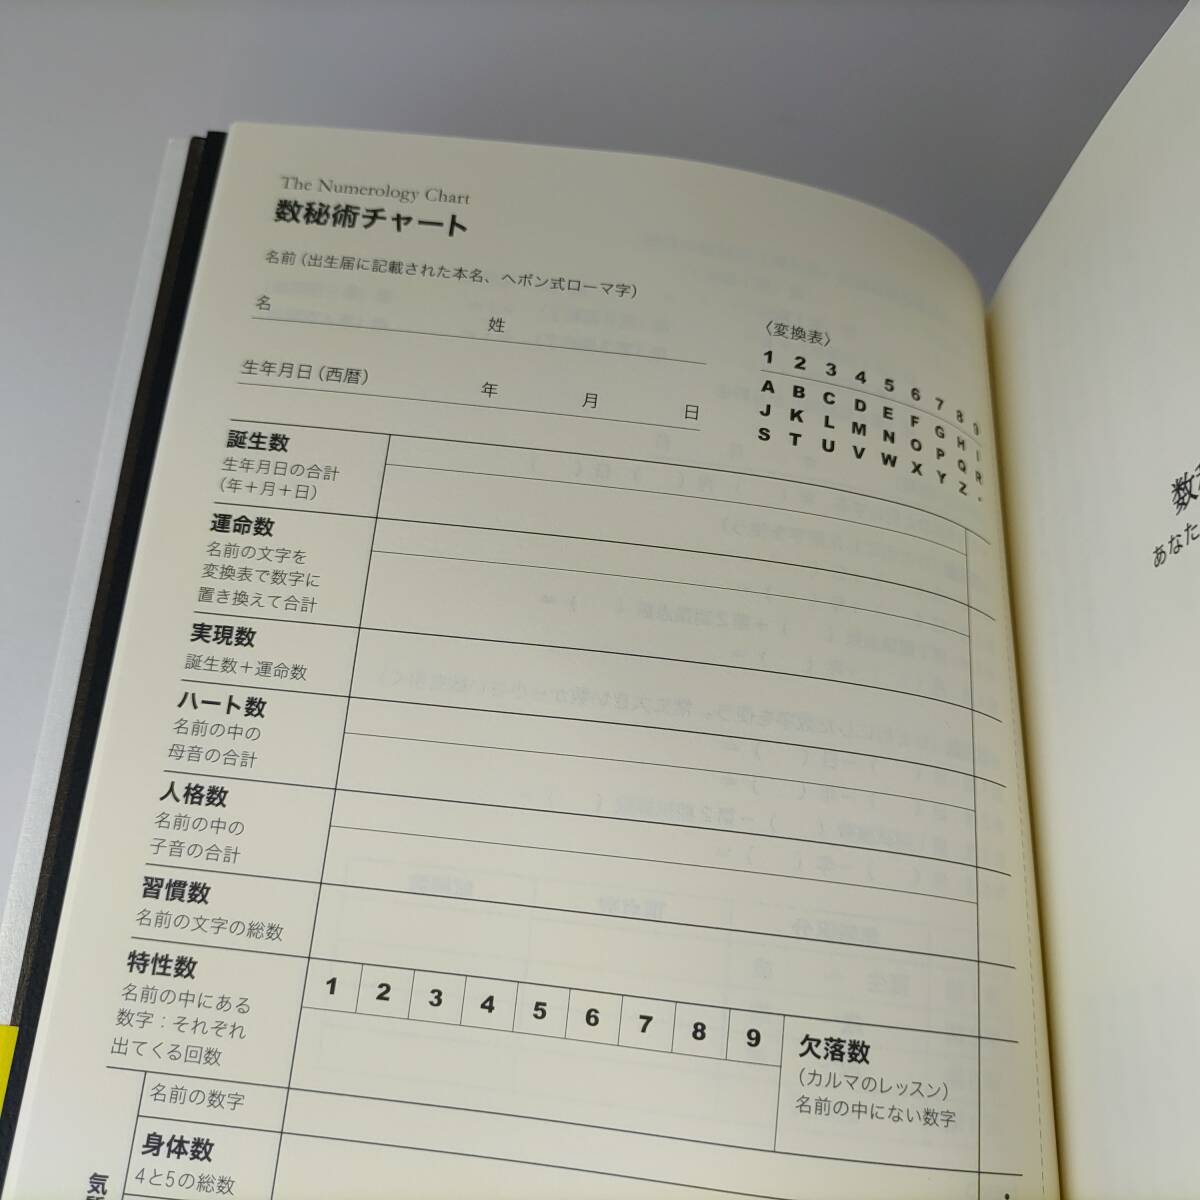 The Numerology Chart
数秘術チャート
名前(出生届に記載された本名、ヘボン式ローマ字)
名 姓
生年月日(西暦) 年 月 日
〈変換表〉
1 2 3 4 5 6 7 8 9
A B C D E F G H I
J K L M N O P Q R
S T U V W X Y Z
誕生数
生年月日の合計
(年+月+日)
運命数
名前の文字を
変換表で数字に
置き換えて合計
実現数
誕生数+運命数
ハート数
名前の中の
母音の合計
人格数
名前の中の
子音の合計
習慣数
名前の文字の総数
特性数
名前の中にある
数字:それぞれ
出てくる回数
1 2 3 4 5 6 7 8 9
欠落数
(カルマのレッスン)
名前の中にない数字
名前の数字
身体数
4と5の総数
気
あなた